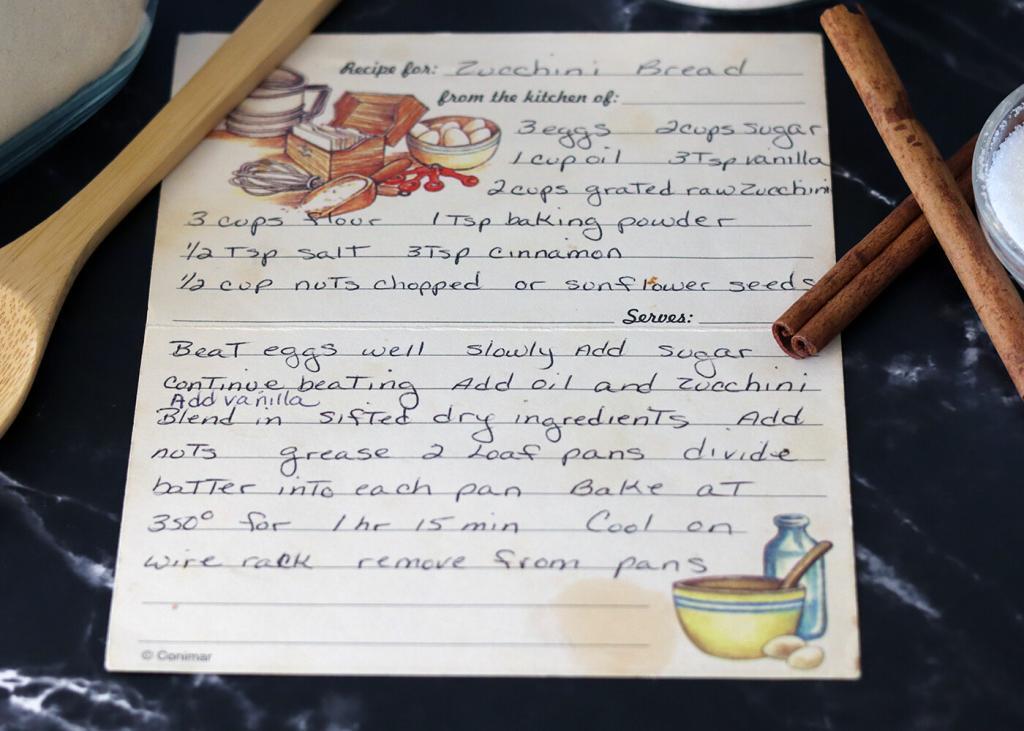 Recipe for: Zucchini Bread
from the kitchen of:
3 eggs 2 cups sugar
1 cup oil 3 Tsp vanilla
2 cups grated raw Zucchini
3 cups flour 1 Tsp baking powder
1/2 Tsp salt 3 Tsp cinnamon
1/2 cup nuts chopped or sunflower seeds
Serves:
Beat eggs well slowly Add sugar
continue beating Add oil and Zucchini
Add vanilla
Blend in sifted dry ingredients Add
nuts grease 2 Loaf pans divide
batter into each pan Bake at
350° for 1 hr 15 min Cool on
wire rack remove from pans
© Conimar